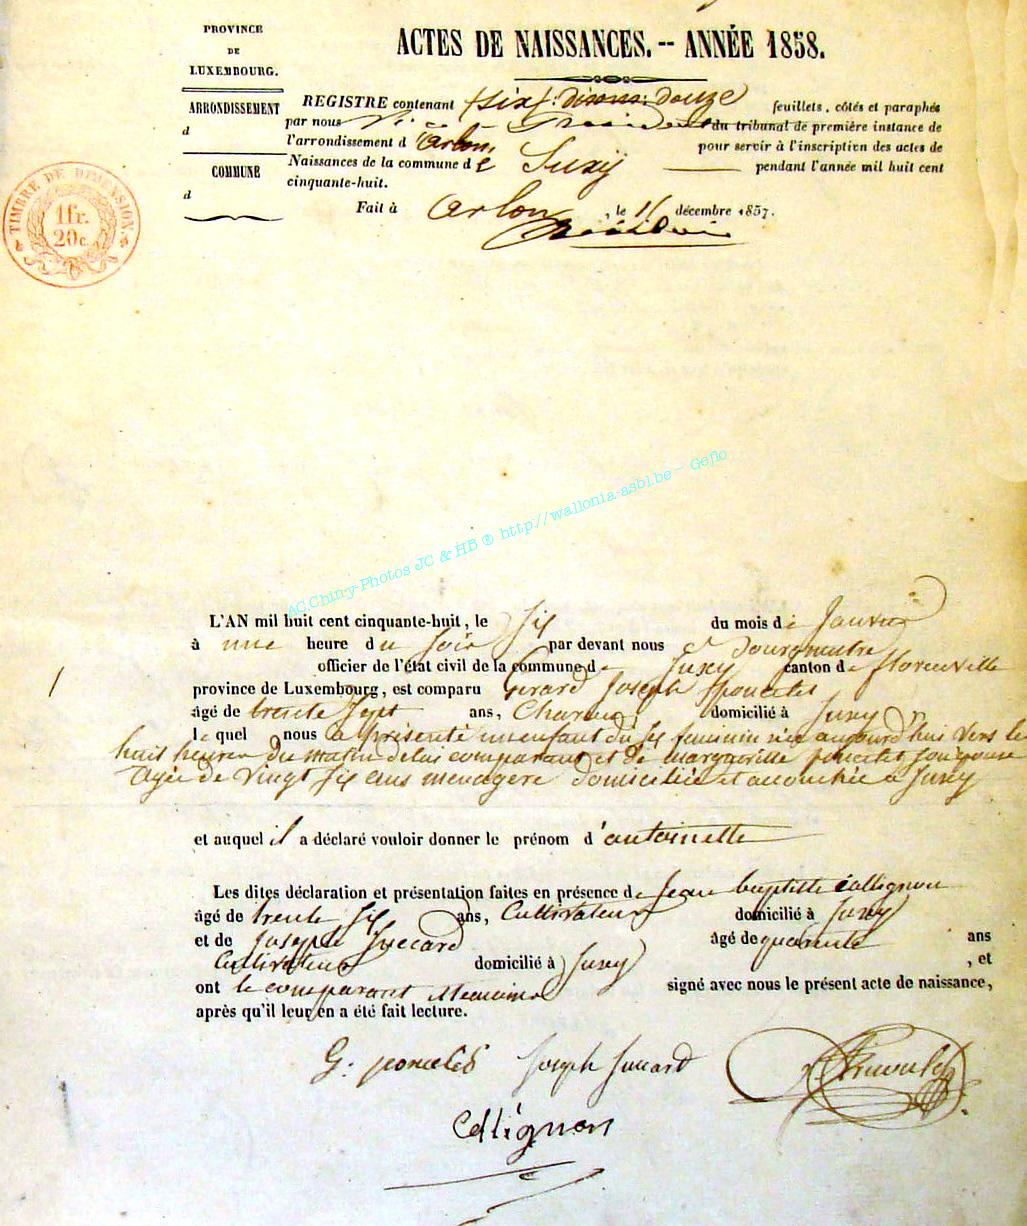 PROVINCE
DE
LUXEMBOURG.
ARRONDISSEMENT
d
COMMUNE
d
TIMBRE DE DIMENSION.
1 fr.
20 c.
ACTES DE NAISSANCES. -- ANNÉE 1858.
REGISTRE contenant (six) disons: douze feuillets, côtés et paraphés
par nous Président du tribunal de première instance de
l'arrondissement d'Arlon, pour servir à l'inscription des actes de
Naissances de la commune de Suxÿ pendant l'année mil huit cent
cinquante-huit.
Fait à Arlon, le 11 décembre 1857.
AC.Chiny-Photos JC & HB ® http://wallonia-asbl.be - Geflo
L'AN mil huit cent cinquante-huit, le six du mois de Janvier
à une heure du soir par devant nous Bourgmestre
officier de l'état civil de la commune de Suxy canton de florenville
province de Luxembourg, est comparu Gérard Joseph
1
âgé de trente sept ans, domicilié à Suxy
lequel nous a présenté un enfant du sex feminin née aujourd'hui vers les
huit heures du matin de lui comparant et de margueritte poncelet son epouse
agée de vingt six ans menagere domiciliée et accouchée a Suxy
et auquel il a déclaré vouloir donner le prénom d'antoinette
Les dites déclaration et présentation faites en présence de Jean baptiste Collignon
âgé de trente six ans, Cultivateur domicilié à Suxy
et de Joseph âgé de quarente ans
Cultivateur domicilié à Suxy, et
ont le comparant et temoins signé avec nous le présent acte de naissance,
après qu'il leur en a été fait lecture.
G. poncelet Joseph
Collignon